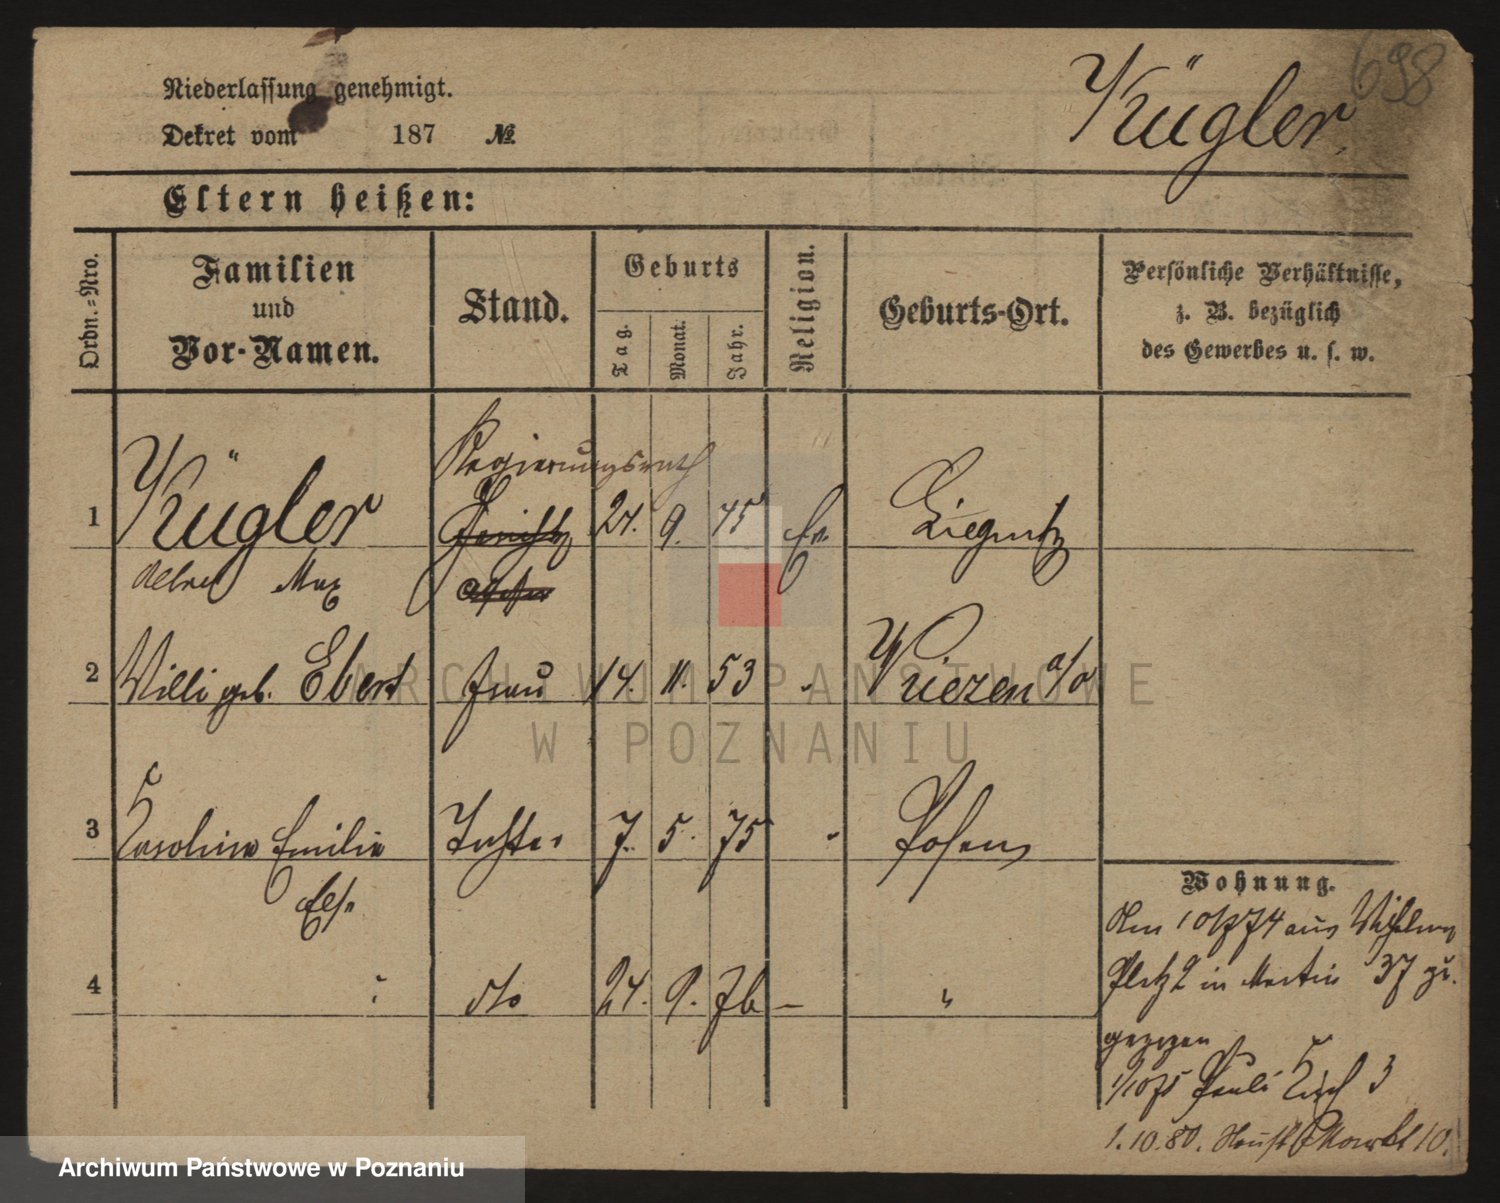 698
Niederlassung genehmigt.
Kügler
Dekret vom 187 №
Eltern heißen:
Ordn.-Nro.
Familien und Vor-Namen.
Stand.
Geburts
Tag.
Monat.
Jahr.
Religion.
Geburts-Ort.
Persönliche Verhältnisse,
z. B. bezüglich
des Gewerbes u. s. w.
Regierungsrath
1 Kügler 24. 9. 45 Ev Liegnitz
Max
2 Willi geb. Ebert Frau 14. 11. 53 " Wriezen a/o
3 Caroline Emilie Tochter 7. 5. 75 " Posen
Else
4 " dto 24. 9. 76 – "
Wohnung.
Am 10/7 74 aus Wilhelms
Platz 2 in Martin 37 zu.
gezogen
1/10 75 Pauli Kirch 3
1.10.80. Markt 10.
ARCHIWUM PAŃSTWOWE
W POZNANIU
Archiwum Państwowe w Poznaniu